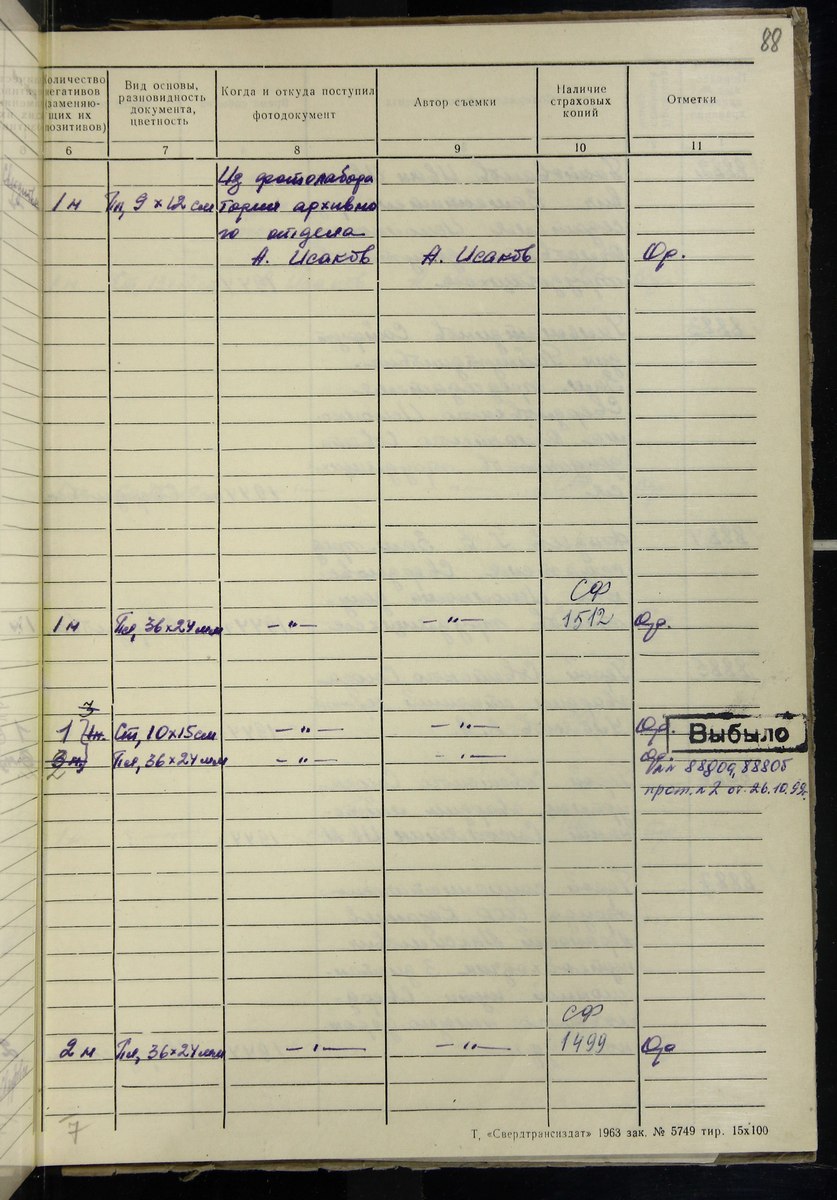 88
Количество негативов (заменяющих их позитивов)
Вид основы, разновидность документа, цветность
Когда и откуда поступил фотодокумент
Автор съемки
Наличие страховых копий
Отметки
6 7 8 9 10 11
Из фотолабора
1 н Пл, 9×12 см тории архивно
го отдела
А. Исаков А. Исаков Ор.
СФ
1 н Пл, 36×24 мм —"— —"— 1512 Ор.
3
1 1н. Ст, 10×15 см —"— —"— Ор. Выбыло
3 н Пл, 36×24 мм —"— —"— Ор.
2 №№ 8880а, 8880б
прот. №2 от 26.10.99г.
СФ
2 н Пл, 36×24 мм —"— —"— 1499 Ор
7
Т. «Свердтрансиздат» 1963 зак. № 5749 тир. 15х100